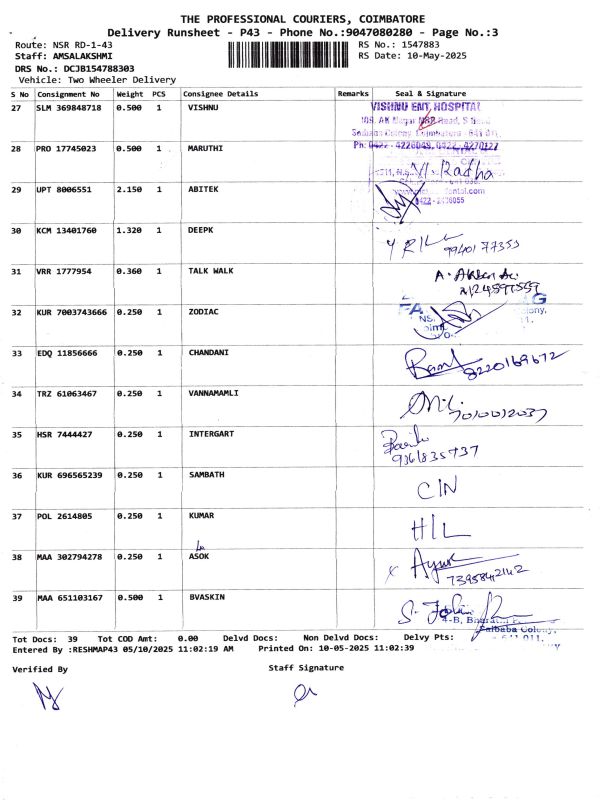 THE PROFESSIONAL COURIERS, COIMBATORE
Delivery Runsheet - P43 - Phone No.:9047080280 - Page No.:3
Route: NSR RD-1-43 RS No.: 1547883
Staff: AMSALAKSHMI RS Date: 10-May-2025
DRS No.: DCJB154788303
Vehicle: Two Wheeler Delivery
S No Consignment No Weight PCS Consignee Details Remarks Seal & Signature
27 SLM 369848718 0.500 1 VISHNU VISHNU ENT. HOSPITAL
Ph: 0422 - 4226049, 0422 - 4270127
28 PRO 17745023 0.500 1 MARUTHI Radha
29 UPT 8006551 2.150 1 ABITEK
30 KCM 13401760 1.320 1 DEEPK 9940177353
31 VRR 1777954 0.360 1 TALK WALK
32 KUR 7003743666 0.250 1 ZODIAC
33 EDQ 11856666 0.250 1 CHANDANI 8220169672
34 TRZ 61063467 0.250 1 VANNAMAMLI
35 HSR 7444427 0.250 1 INTERGART
9361835737
36 KUR 696565239 0.250 1 SAMBATH CIN
37 POL 2614805 0.250 1 KUMAR H/L
38 MAA 302794278 0.250 1 ASOK
7395842142
39 MAA 651103167 0.500 1 BVASKIN
Saibaba Colony,
Tot Docs: 39 Tot COD Amt: 0.00 Delvd Docs: Non Delvd Docs: Delvy Pts:
Entered By :RESHMAP43 05/10/2025 11:02:19 AM Printed On: 10-05-2025 11:02:39
Verified By Staff Signature